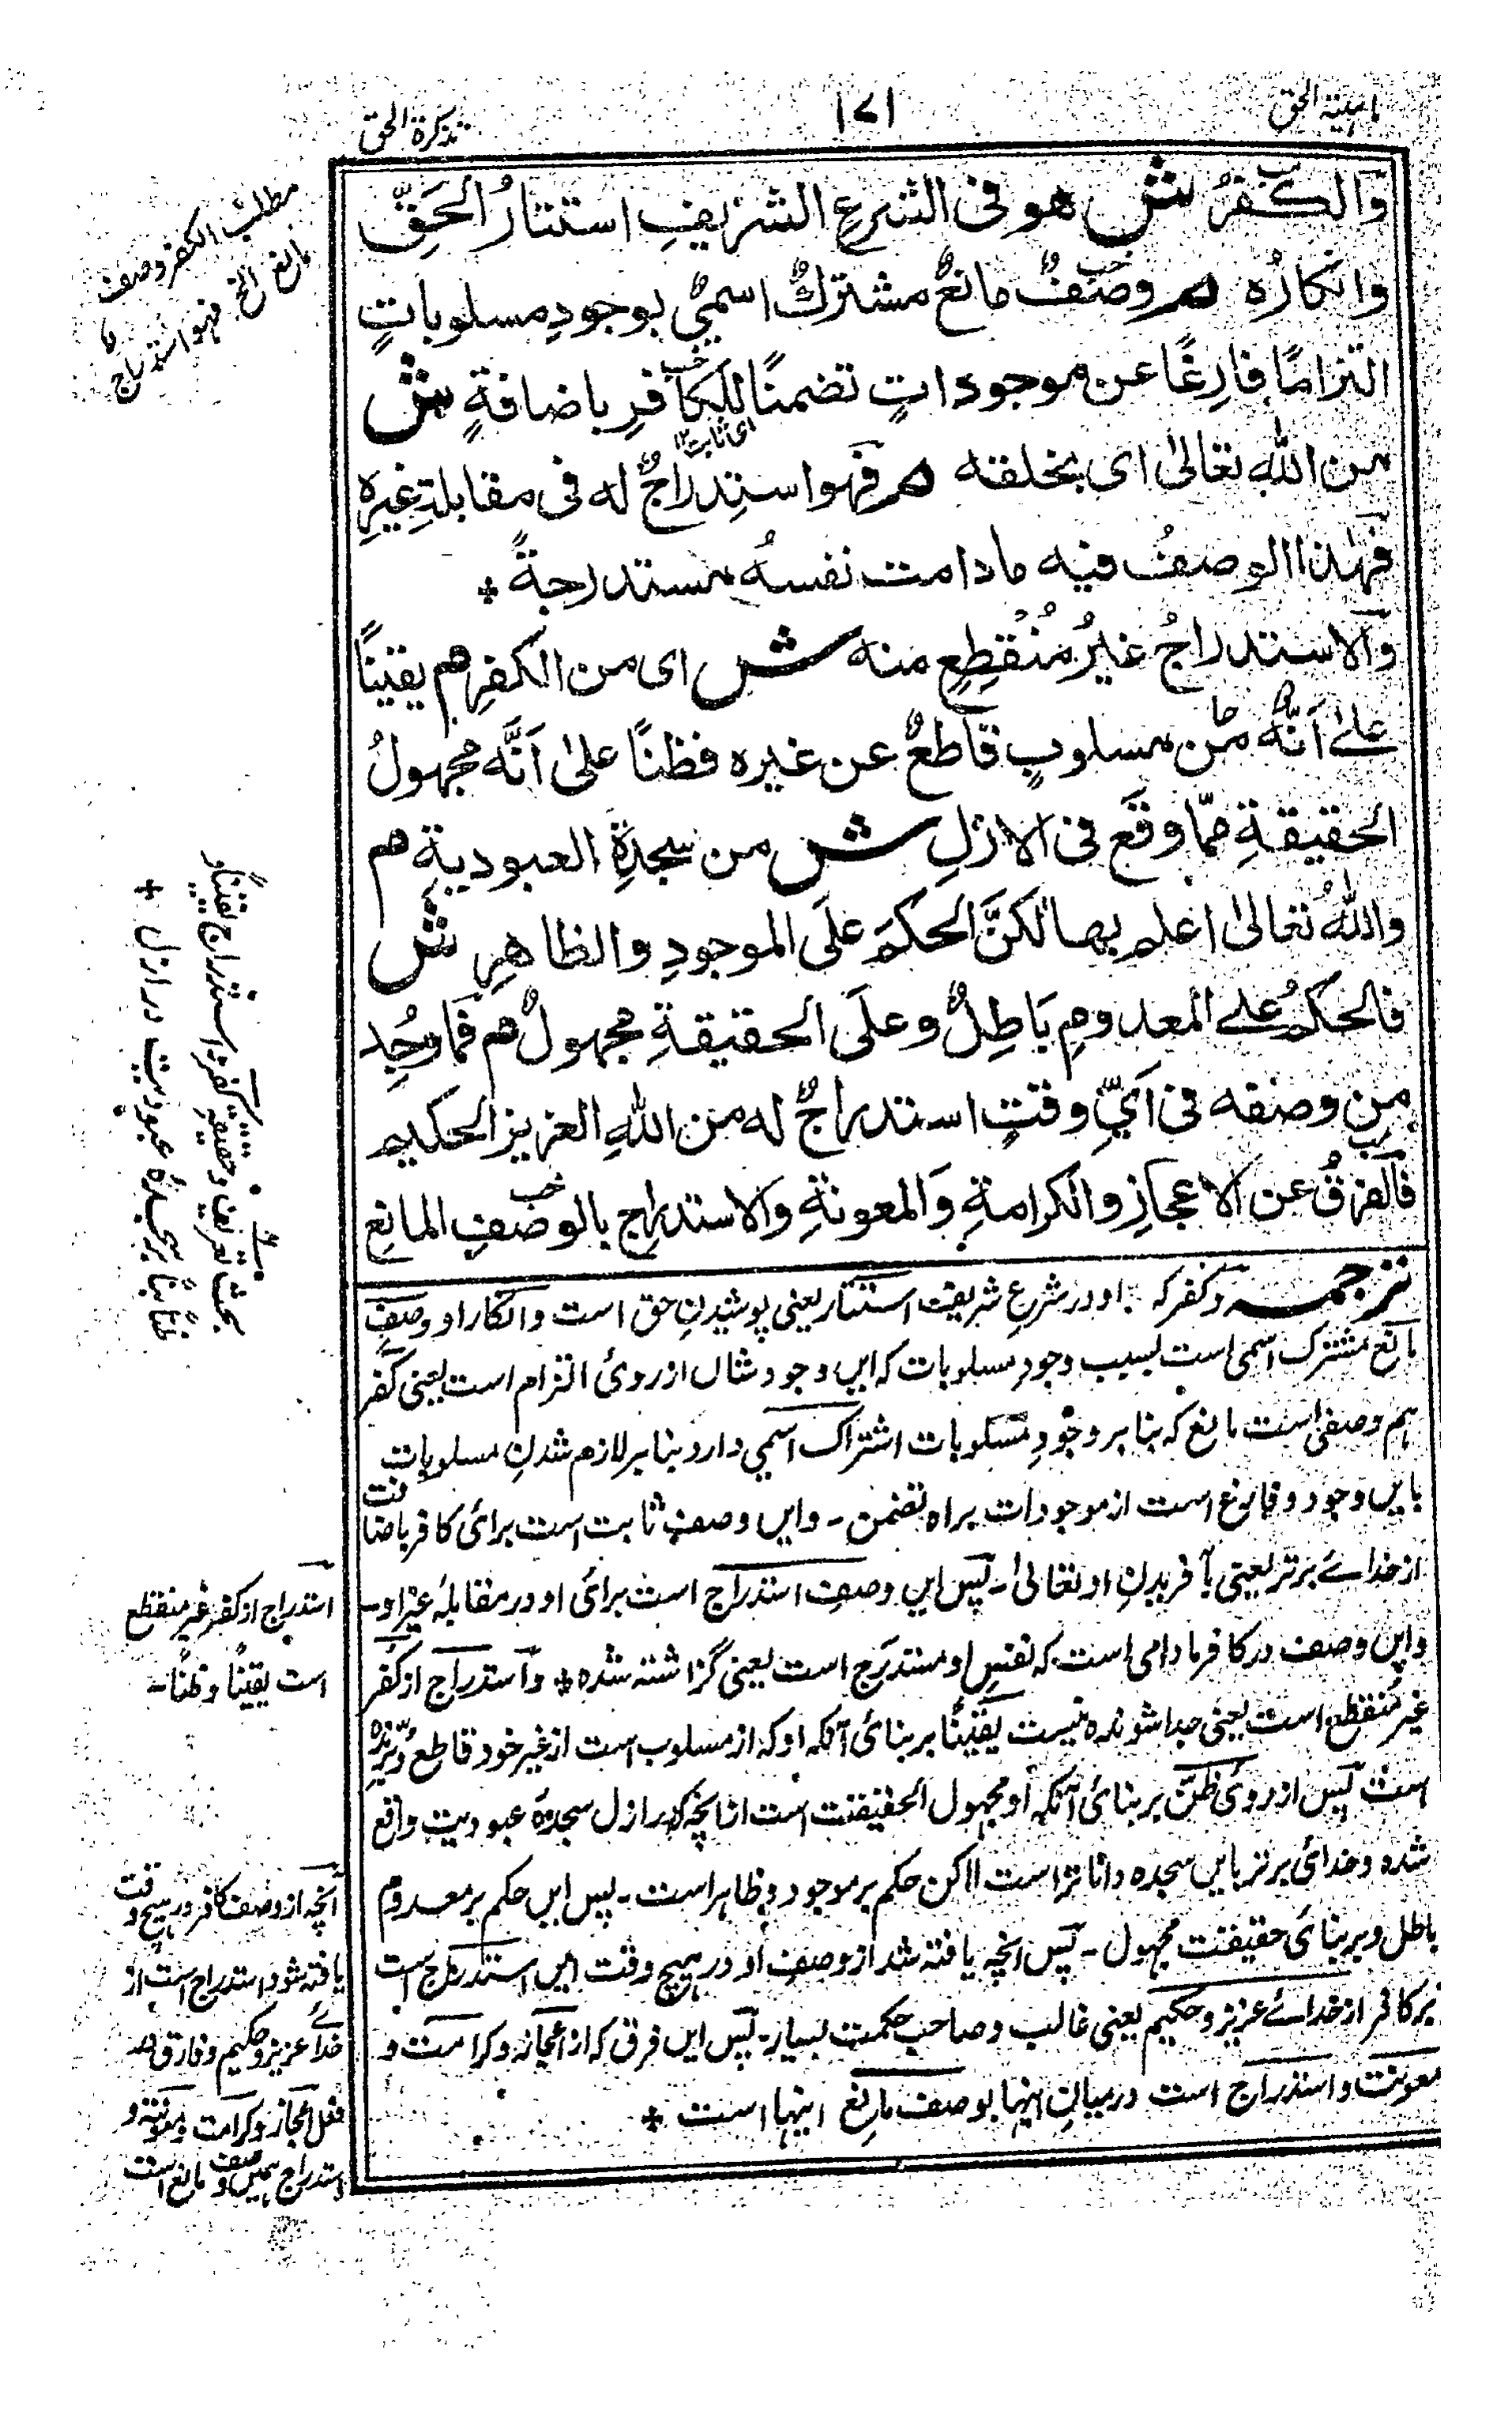 تذکرة الحق
۱۷۱
والکفرُ ش هو فی الشرعِ الشریفِ استتارُ الحَقِّ
وانکارُه هم وصفٌ مانعٌ مشترکٌ اسمیٌ بوجودِ مسلوباتٍ
التزامًا فارِغًا عن موجوداتٍ تضمنًا للکافرِ باضافةٍ ش
ای ثابت ۱۲
من اللهِ تعالیٰ ای بخلقته هم فهو استدراجٌ له فی مقابلةِ غیرِهِ
فهٰذا الوصفُ فیه مادامت نفسُه مستدرجةً +
والاستدراجُ غیرُ مُنْقطِعٍ منه ش ای من الکفرِ هم یقینًا
علیٰ اَنَّهُ من مسلوبٍ قاطعٌ عن غیره فظنًا علیٰ اَنَّه مجهولُ
الحقیقةِ مِمّا وقَع فی الازلِ ش من سجدةِ العبودیةِ هم
واللهُ تعالیٰ اعلم بها لکنَّ الحکمَ علَی الموجودِ والظاهرِ ش
فالحکمُ علے المعدومِ بَاطِلٌ وعلَی الحقیقةِ مجهولٌ هم فما وُجِد
مِن وصفه فی اَیِّ وقتٍ استدراجٌ له من اللهِ العزیز الحکیم
فالفرقُ عن الاعجازِ والکرامةِ والمعونةِ والاستدراج بالوصفِ المانعِ
ترجمہ وکفر کہ او در شرعِ شریف استتار یعنی پوشیدنِ حق است وانکار او وصفِ
مانع مشترک اسمی است بسبب وجودِ مسلوبات کہ ایں وجود شاں از روئ التزام است یعنی کفر
ہم وصفی است مانع کہ بنا بر وجودِ مسلوبات اشتراک اسمی دارد بنا بر لازم شدنِ مسلوبات
بایں وجود وفارغ است از موجودات براہ تضمن ۔ وایں وصف ثابت است برائ کافر باضافت
از خدائے برتر یعنی بآفریدنِ او تعالیٰ ۔ پس ایں وصف استدراج است برائ او در مقابلہٴ غیر او ۔
وایں وصف در کافر مادامی است کہ نفسِ او مستدرج است یعنی گزاشتہ شدہ + واستدراج از کفر
غیر منقطع است یعنی جدا شوندہ نیست یقینًا بر بنائ آنکہ او کہ از مسلوب است از غیر خود قاطع وبُرّندہ
است پس از روئ ظنّ بر بنائ آنکہ او مجہول الحقیقت است ازانچہ کہ در ازل سجدہٴ عبودیت واقع
شدہ وخدائ برتر بایں سجدہ داناتر است لاکن حکم بر موجود وظاہر است ۔ پس ایں حکم بر معدوم
باطل وبر بنائ حقیقت مجہول ۔ پس انچہ یافتہ شد از وصفِ او در ہیچ وقت ایں استدراج است
بر کافر از خدائے عزیز وحکیم یعنی غالب وصاحبِ حکمت بسیار ۔ پس ایں فرق کہ از اعجاز وکرامت و
معونت واستدراج است درمیانِ اینہا بوصف مانع اینہا است +
مطلب الکفر وصف
مانع الخ فہو استدراج
بحث تعریف وحقیقۃ کفر واستدراج یقینًا و
ظنًا بنا بر سجدہٴ عبودیت در ازل +
استدراج از کفر غیر منقطع
است یقینًا وظنًا ۔
آنچہ از وصف کافر در ہیچ وقت
یافتہ شود استدراج است از
خدائے عزیز وحکیم وفارق
اعجاز وکرامت ومعونۃ و
استدراج ہمیں وصف مانع است